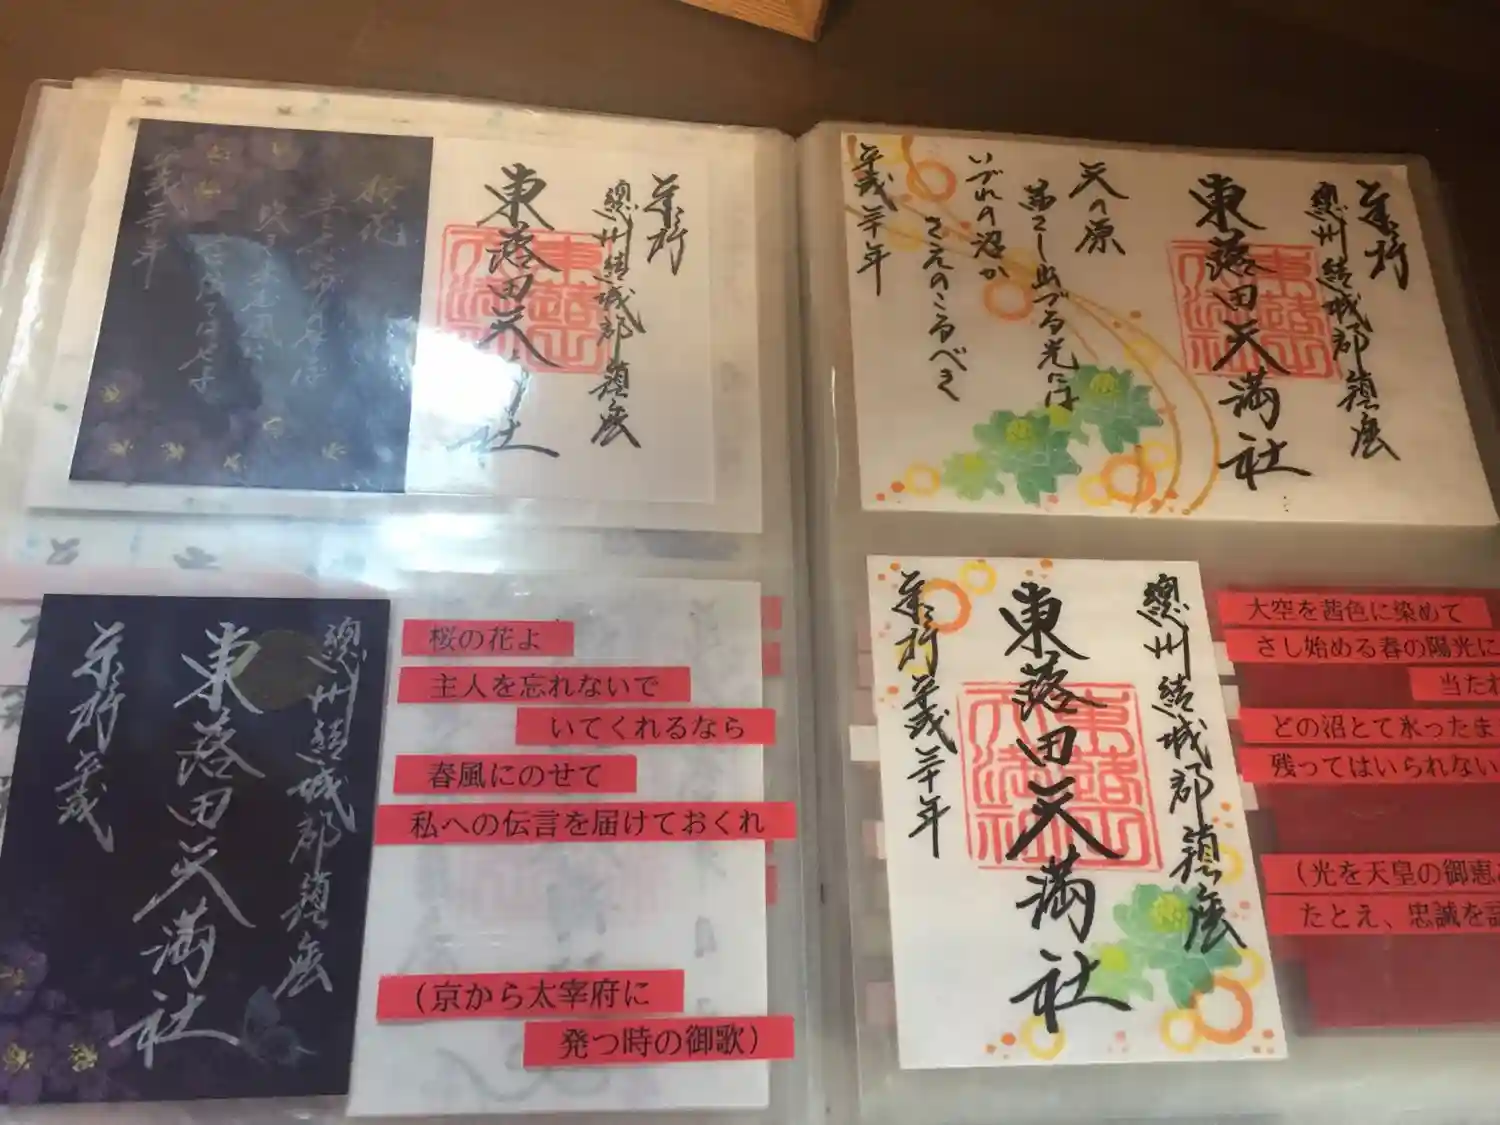 奉拝
總州結城郡鎮座
東蕗田天満社
桜花
平成三十年
奉拝
總州結城郡鎮座
東蕗田天満社
天の原
茜さし出づる光には
いづれの沼か
さえのこるべき
平成三十年
總州結城郡鎮座
東蕗田天満社
奉拝 平成
桜の花よ
主人を忘れないで
いてくれるなら
春風にのせて
私への伝言を届けておくれ
(京から太宰府に
発つ時の御歌)
總州結城郡鎮座
東蕗田天満社
奉拝 平成三十年
大空を茜色に染めて
さし始める春の陽光に
当たれ
どの沼とて氷ったま
残ってはいられない
(光を天皇の御恵
たとえ、忠誠を